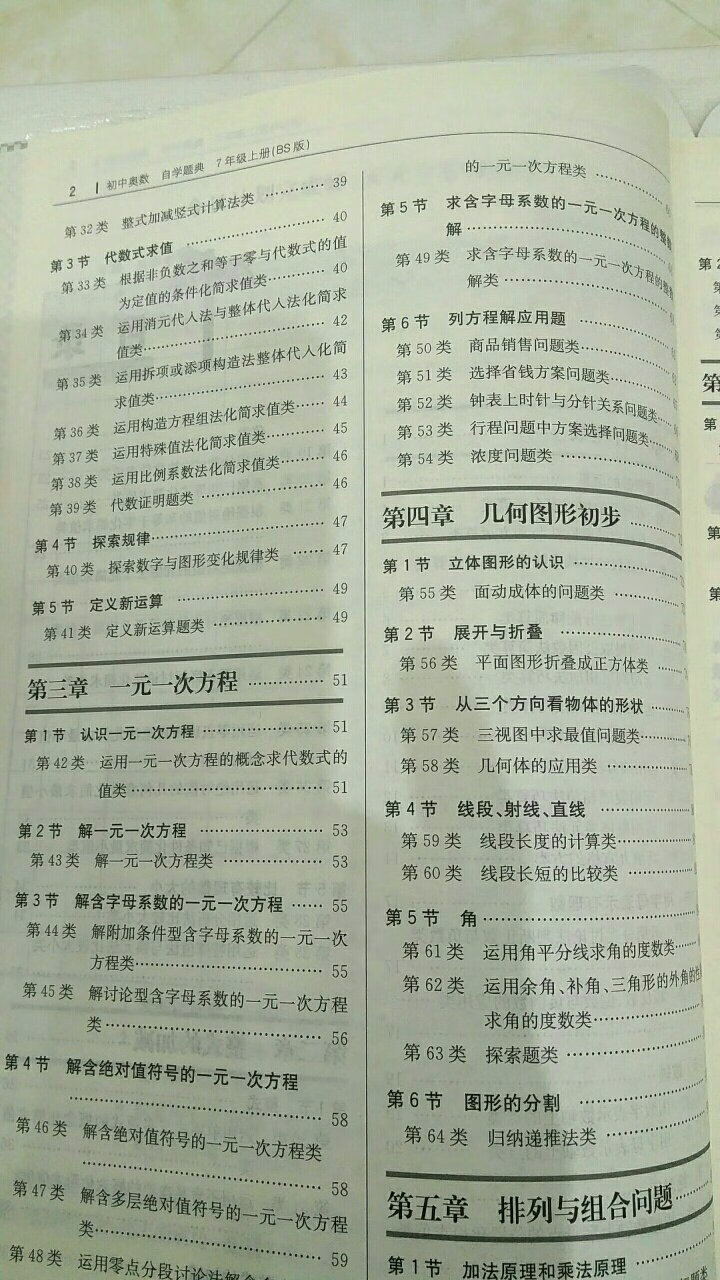 2 初中奥数 自学题典 7年级上册(BS版)
第32类 整式加减竖式计算法类 ………… 39
第3节 代数式求值 ………… 40
第33类 根据非负数之和等于零与代数式的值
为定值的条件化简求值类………… 40
第34类 运用消元代入法与整体代入法化简求
值类………… 42
第35类 运用拆项或添项构造法整体代入化简
求值类………… 43
第36类 运用构造方程组法化简求值类………… 44
第37类 运用特殊值法化简求值类………… 45
第38类 运用比例系数法化简求值类………… 46
第39类 代数证明题类 ………… 46
第4节 探索规律………… 47
第40类 探索数字与图形变化规律类 ………… 47
第5节 定义新运算 ………… 49
第41类 定义新运算题类 ………… 49
第三章 一元一次方程 ………… 51
第1节 认识一元一次方程 ………… 51
第42类 运用一元一次方程的概念求代数式的
值类………… 51
第2节 解一元一次方程 ………… 53
第43类 解一元一次方程类 ………… 53
第3节 解含字母系数的一元一次方程 ………… 55
第44类 解附加条件型含字母系数的一元一次
方程类………… 55
第45类 解讨论型含字母系数的一元一次方程
类………… 56
第4节 解含绝对值符号的一元一次方程
………… 58
第46类 解含绝对值符号的一元一次方程类
………… 58
第47类 解含多层绝对值符号的一元一次方程
类………… 59
第48类 运用零点分段讨论法解含
的一元一次方程类 …………
第5节 求含字母系数的一元一次方程的整数
解…………
第49类 求含字母系数的一元一次方程的整数
解类…………
第6节 列方程解应用题 …………
第50类 商品销售问题类…………
第51类 选择省钱方案问题类…………
第52类 钟表上时针与分针关系问题类…………
第53类 行程问题中方案选择问题类…………
第54类 浓度问题类 …………
第四章 几何图形初步 …………
第1节 立体图形的认识 …………
第55类 面动成体的问题类 …………
第2节 展开与折叠 …………
第56类 平面图形折叠成正方体类 …………
第3节 从三个方向看物体的形状 …………
第57类 三视图中求最值问题类…………
第58类 几何体的应用类 …………
第4节 线段、射线、直线 …………
第59类 线段长度的计算类…………
第60类 线段长短的比较类 …………
第5节 角…………
第61类 运用角平分线求角的度数类…………
第62类 运用余角、补角、三角形的外角的性
求角的度数类…………
第63类 探索题类 …………
第6节 图形的分割 …………
第64类 归纳递推法类 …………
第五章 排列与组合问题…………
第1节 加法原理和乘法原理 …………